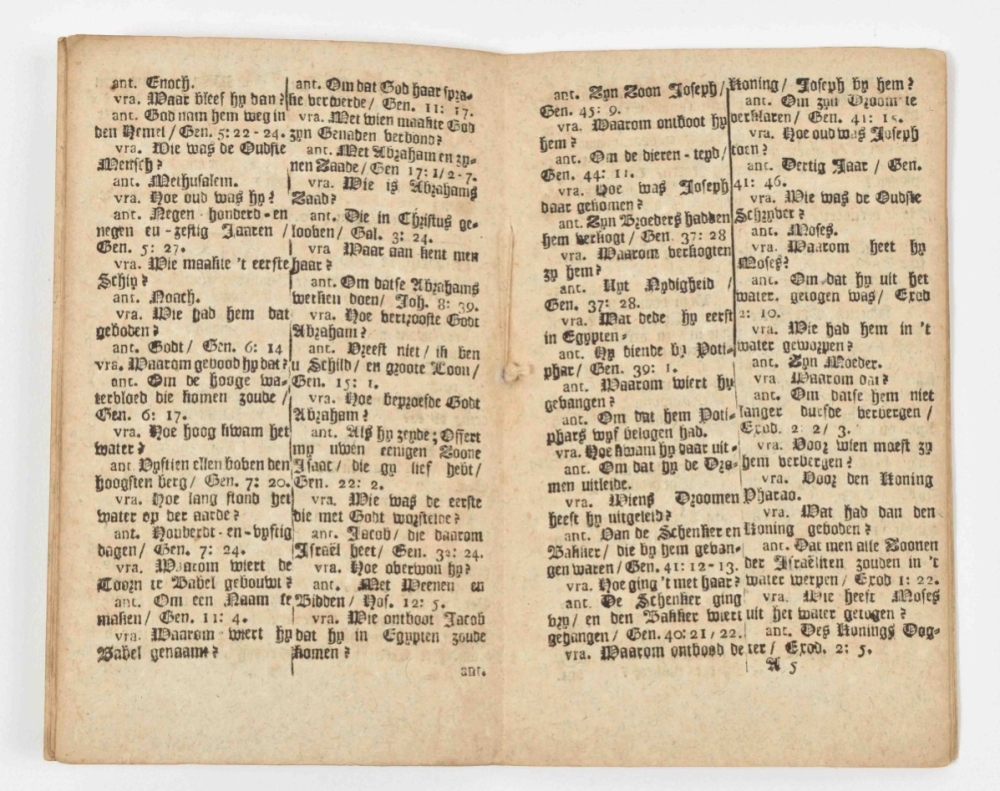 ant. Enoch.
vra. Waar bleef hy dan?
ant. God nam hem weg in
den Hemel / Gen. 5: 22-24.
vra. Wie was de Oudste
Mensch?
ant. Methusalem.
vra. Hoe oud was hy?
ant. Negen-honderd-en
negen eu-zestig Jaaren /
Gen. 5: 27.
vra. Wie maakte 't eerste
Schip?
ant. Noach.
vra. Wie had hem dat
geboden?
ant. Godt / Gen. 6: 14
vra. Waarom gebood hy dat?
ant. Om de hooge wa-
terbloed die komen zoude /
Gen. 6: 17.
vra. Hoe hoog kwam het
water?
ant. Vystien ellen boven den
hoogsten berg / Gen. 7: 20.
vra. Hoe lang stond het
water op der aarde?
ant. Houderdt-en-vystig
dagen / Gen. 7: 24.
vra. Waarom wiert de
Toorn te Babel gebouwt?
ant. Om een Naam te
maken / Gen. 11: 4.
vra. Waarom wiert hy
Babel genaamt?
ant. Om dat God haar spra-
ke verwerde / Gen. 11: 17.
vra. Met wien maakte God
zyn Genaden verbond?
ant. Met Abraham en zy-
nen Zaade / Gen 17: 1/2-7.
vra. Wie is Abrahams
Zaad?
ant. Die in Christus ge-
looven / Gal. 3: 24.
vra Waar aan kent men
haar?
ant. Om datse Abrahams
werken doen / Joh. 8: 39.
vra. Hoe vertrooste Godt
Abraham?
ant. Vreest niet / ik ben
u Schild / en groote Loon /
Gen. 15: 1.
vra. Hoe beproefde Godt
Abraham?
ant. Als hy zeyde; Offert
my uwen eenigen Zoone
Isaac / die gy lief hebt /
Gen. 22: 2.
vra. Wie was de eerste
die met Godt worstelde?
ant. Jacob / die daarom
Israël heet / Gen. 32: 24.
vra. Hoe overwon hy?
ant. Met Weenen en
Bidden / Hos. 12: 5.
vra. Wie ontboot Jacob
dat hy in Egypten zoude
komen?
ant.
ant. Zyn Zoon Joseph /
Gen. 45: 9.
vra. Waarom ontboot hy
hem?
ant. Om de dieren-teyd /
Gen. 44: 11.
vra. Hoe was Joseph
daar gekomen?
ant. Zyn Broeders hadden
hem verkogt / Gen. 37: 28
vra. Waarom verkogten
zy hem?
ant. Uyt Nydigheid /
Gen. 37: 28.
vra. Wat dede hy eerst
in Egypten-
ant. Hy diende by Poti-
phar / Gen. 39: 1.
vra. Waarom wiert hy
gevangen?
ant. Om dat hem Poti-
phars wyf belogen had.
vra. Hoe kwam hy daar uit-
ant. Om dat hy de Dro-
men uitleide.
vra. Wiens Droomen
heeft hy uitgeleid?
ant. Van de Schenker en
Bakker / die by hem gevan-
gen waren / Gen. 41: 12-13.
vra. Hoe ging 't met haar?
ant. De Schenker ging
vry / en den Bakker wiert
gehangen / Gen. 40: 21/22.
vra. Waarom ontbood de
Koning / Joseph by hem?
ant. Om zyn Droom te
verklaren / Gen. 41: 15.
vra. Hoe oud was Joseph
toen?
ant. Dertig Jaar / Gen.
41: 46.
vra. Wie was de Oudste
Schryver?
ant. Moses.
vra. Waarom heet hy
Moses?
ant. Om dat hy uit het
water. getogen was / Exod
2: 10.
vra. Wie had hem in 't
water geworpen?
ant. Zyn Moeder.
vra. Waarom dat?
ant. Om datse hem niet
langer durfde verbergen /
Exod. 2: 2/ 3.
vra. Voor wien moest zy
hem verbergen?
vra. Voor den Koning
Pharao.
vra. Wat had dan den
Koning geboden?
ant. Dat men alle Zoonen
der Israëliten zouden in 't
water werpen / Exod 1: 22.
vra. Wie heeft Moses
uit het water getogen?
ant. Des Konings Dog-
ter / Exod. 2: 5.
A 5